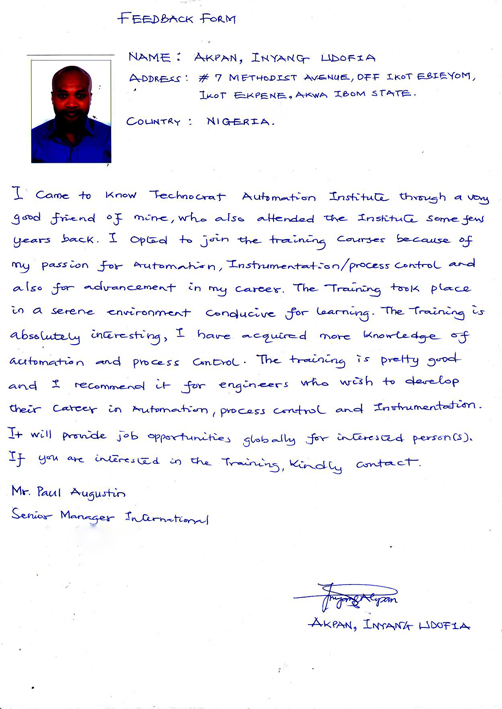 FEEDBACK FORM
NAME: AKPAN, INYANG UDOFIA
ADDRESS: # 7 METHODIST AVENUE, OFF IKOT EBIEYOM,
IKOT EKPENE. AKWA IBOM STATE.
COUNTRY: NIGERIA.
I Came to know Technocrat Automation Institute through a very
good friend of mine, who also attended the Institute some few
years back. I Opted to join the training Courses because of
my passion for Automation, Instrumentation/process Control and
also for advancement in my career. The Training took place
in a serene environment conducive for learning. The Training is
absolutely interesting, I have acquired more knowledge of
automation and process Control. The training is pretty good
and I recommend it for engineers who wish to develop
their Career in Automation, process control and Instrumentation.
It will provide job opportunities globally for interested person(s).
If you are interested in the Training, Kindly contact.
Mr. Paul Augustin
Senior Manager International
Inyang Akpan
AKPAN, INYANG UDOFIA